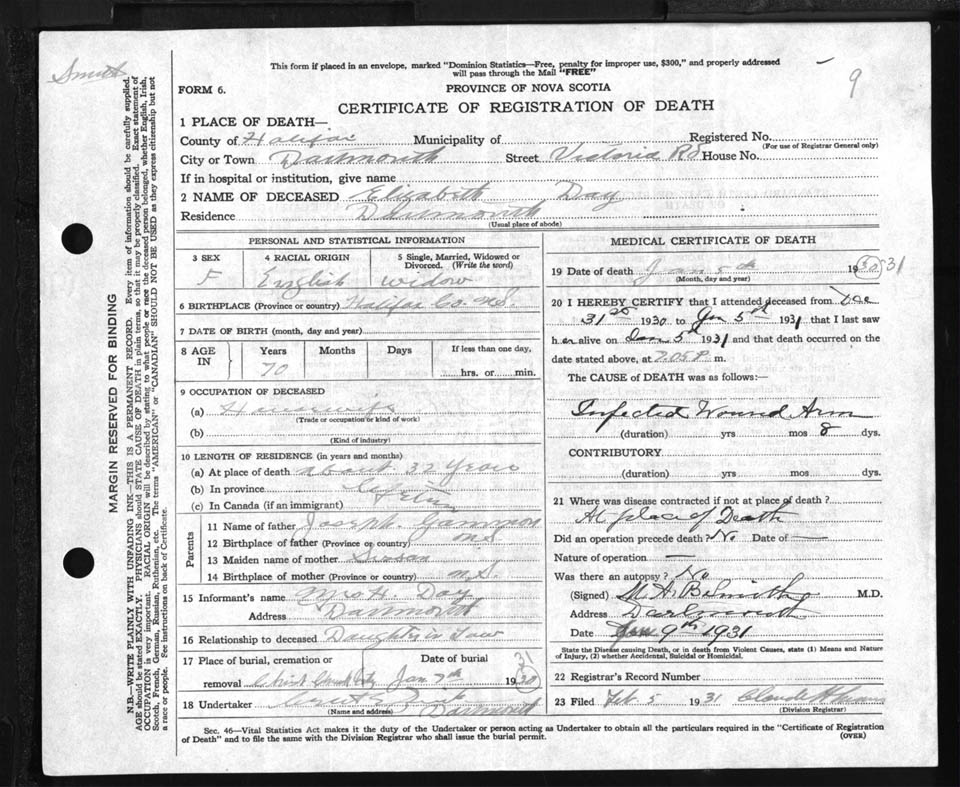 Smith
This form if placed in an envelope, marked "Dominion Statistics—Free, penalty for improper use, $300," and properly addressed
will pass through the Mail "FREE"
9
FORM 6.
PROVINCE OF NOVA SCOTIA
CERTIFICATE OF REGISTRATION OF DEATH
1 PLACE OF DEATH—
County of Halifax Municipality of Registered No.
(For use of Registrar General only)
City or Town Dartmouth Street Victoria Rd House No.
If in hospital or institution, give name
2 NAME OF DECEASED Elizabeth Day
Residence Dartmouth
(Usual place of abode)
PERSONAL AND STATISTICAL INFORMATION
3 SEX
F
4 RACIAL ORIGIN
English
5 Single, Married, Widowed or
Divorced. (Write the word)
widow
6 BIRTHPLACE (Province or country) Halifax Co. N.S.
7 DATE OF BIRTH (month, day and year)
8 AGE
IN
Years
70
Months
Days
If less than one day,
hrs. or min.
9 OCCUPATION OF DECEASED
(a) Housewife
(Trade or occupation or kind of work)
(b)
(Kind of industry)
10 LENGTH OF RESIDENCE (in years and months)
(a) At place of death about 32 years
(b) In province
(c) In Canada (if an immigrant)
Parents
11 Name of father Joseph
12 Birthplace of father (Province or country) N.S.
13 Maiden name of mother Susan
14 Birthplace of mother (Province or country) N.S.
15 Informant's name Mrs H. Day
Address Dartmouth
16 Relationship to deceased Daughter in law
17 Place of burial, cremation or
removal Christ Church
Date of burial
Jan 7th 1930 31
18 Undertaker Dartmouth
(Name and address)
MEDICAL CERTIFICATE OF DEATH
19 Date of death Jan 5th 1930 31
(Month, day and year)
20 I HEREBY CERTIFY that I attended deceased from Dec
31st 1930 to Jan 5th 1931 that I last saw
her alive on Jan 5th 1931 and that death occurred on the
date stated above, at 7.05 P. m.
The CAUSE of DEATH was as follows:—
Infected Wound Arm
(duration) yrs mos 8 dys.
CONTRIBUTORY
(duration) yrs mos dys.
21 Where was disease contracted if not at place of death?
At place of Death
Did an operation precede death? No Date of —
Nature of operation —
Was there an autopsy? No
(Signed) Smith M.D.
Address Dartmouth
Date Jan 9th 1931
State the Disease causing Death, or in death from Violent Causes, state (1) Means and Nature
of Injury, (2) whether Accidental, Suicidal or Homicidal.
22 Registrar's Record Number
23 Filed Feb 5 1931
(Division Registrar)
Sec. 46—Vital Statistics Act makes it the duty of the Undertaker or person acting as Undertaker to obtain all the particulars required in the "Certificate of Registration
of Death" and to file the same with the Division Registrar who shall issue the burial permit.
(OVER)
MARGIN RESERVED FOR BINDING
N.B.—WRITE PLAINLY WITH UNFADING INK—THIS IS A PERMANENT RECORD. Every item of information should be carefully supplied.
AGE should be stated EXACTLY. PHYSICIANS should STATE CAUSE OF DEATH in plain terms, so that it may be properly classified. Exact statement of
OCCUPATION is very important. RACIAL ORIGIN will be described by stating to what people or race the deceased person belonged, whether English, Irish,
Scotch, French, German, Russian, Ruthenian, etc. The terms "AMERICAN" or "CANADIAN" SHOULD NOT BE USED as they express citizenship but not
a race or people. See instructions on back of Certificate.